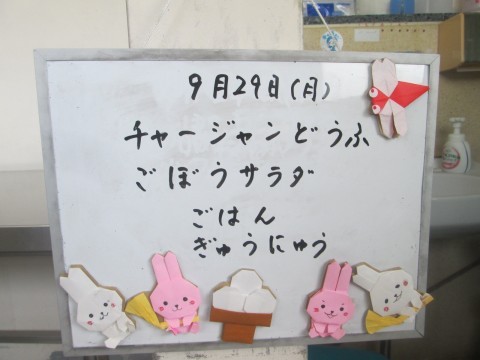 9月29日(月)
チャージャンどうふ
ごぼうサラダ
ごはん
ぎゅうにゅう